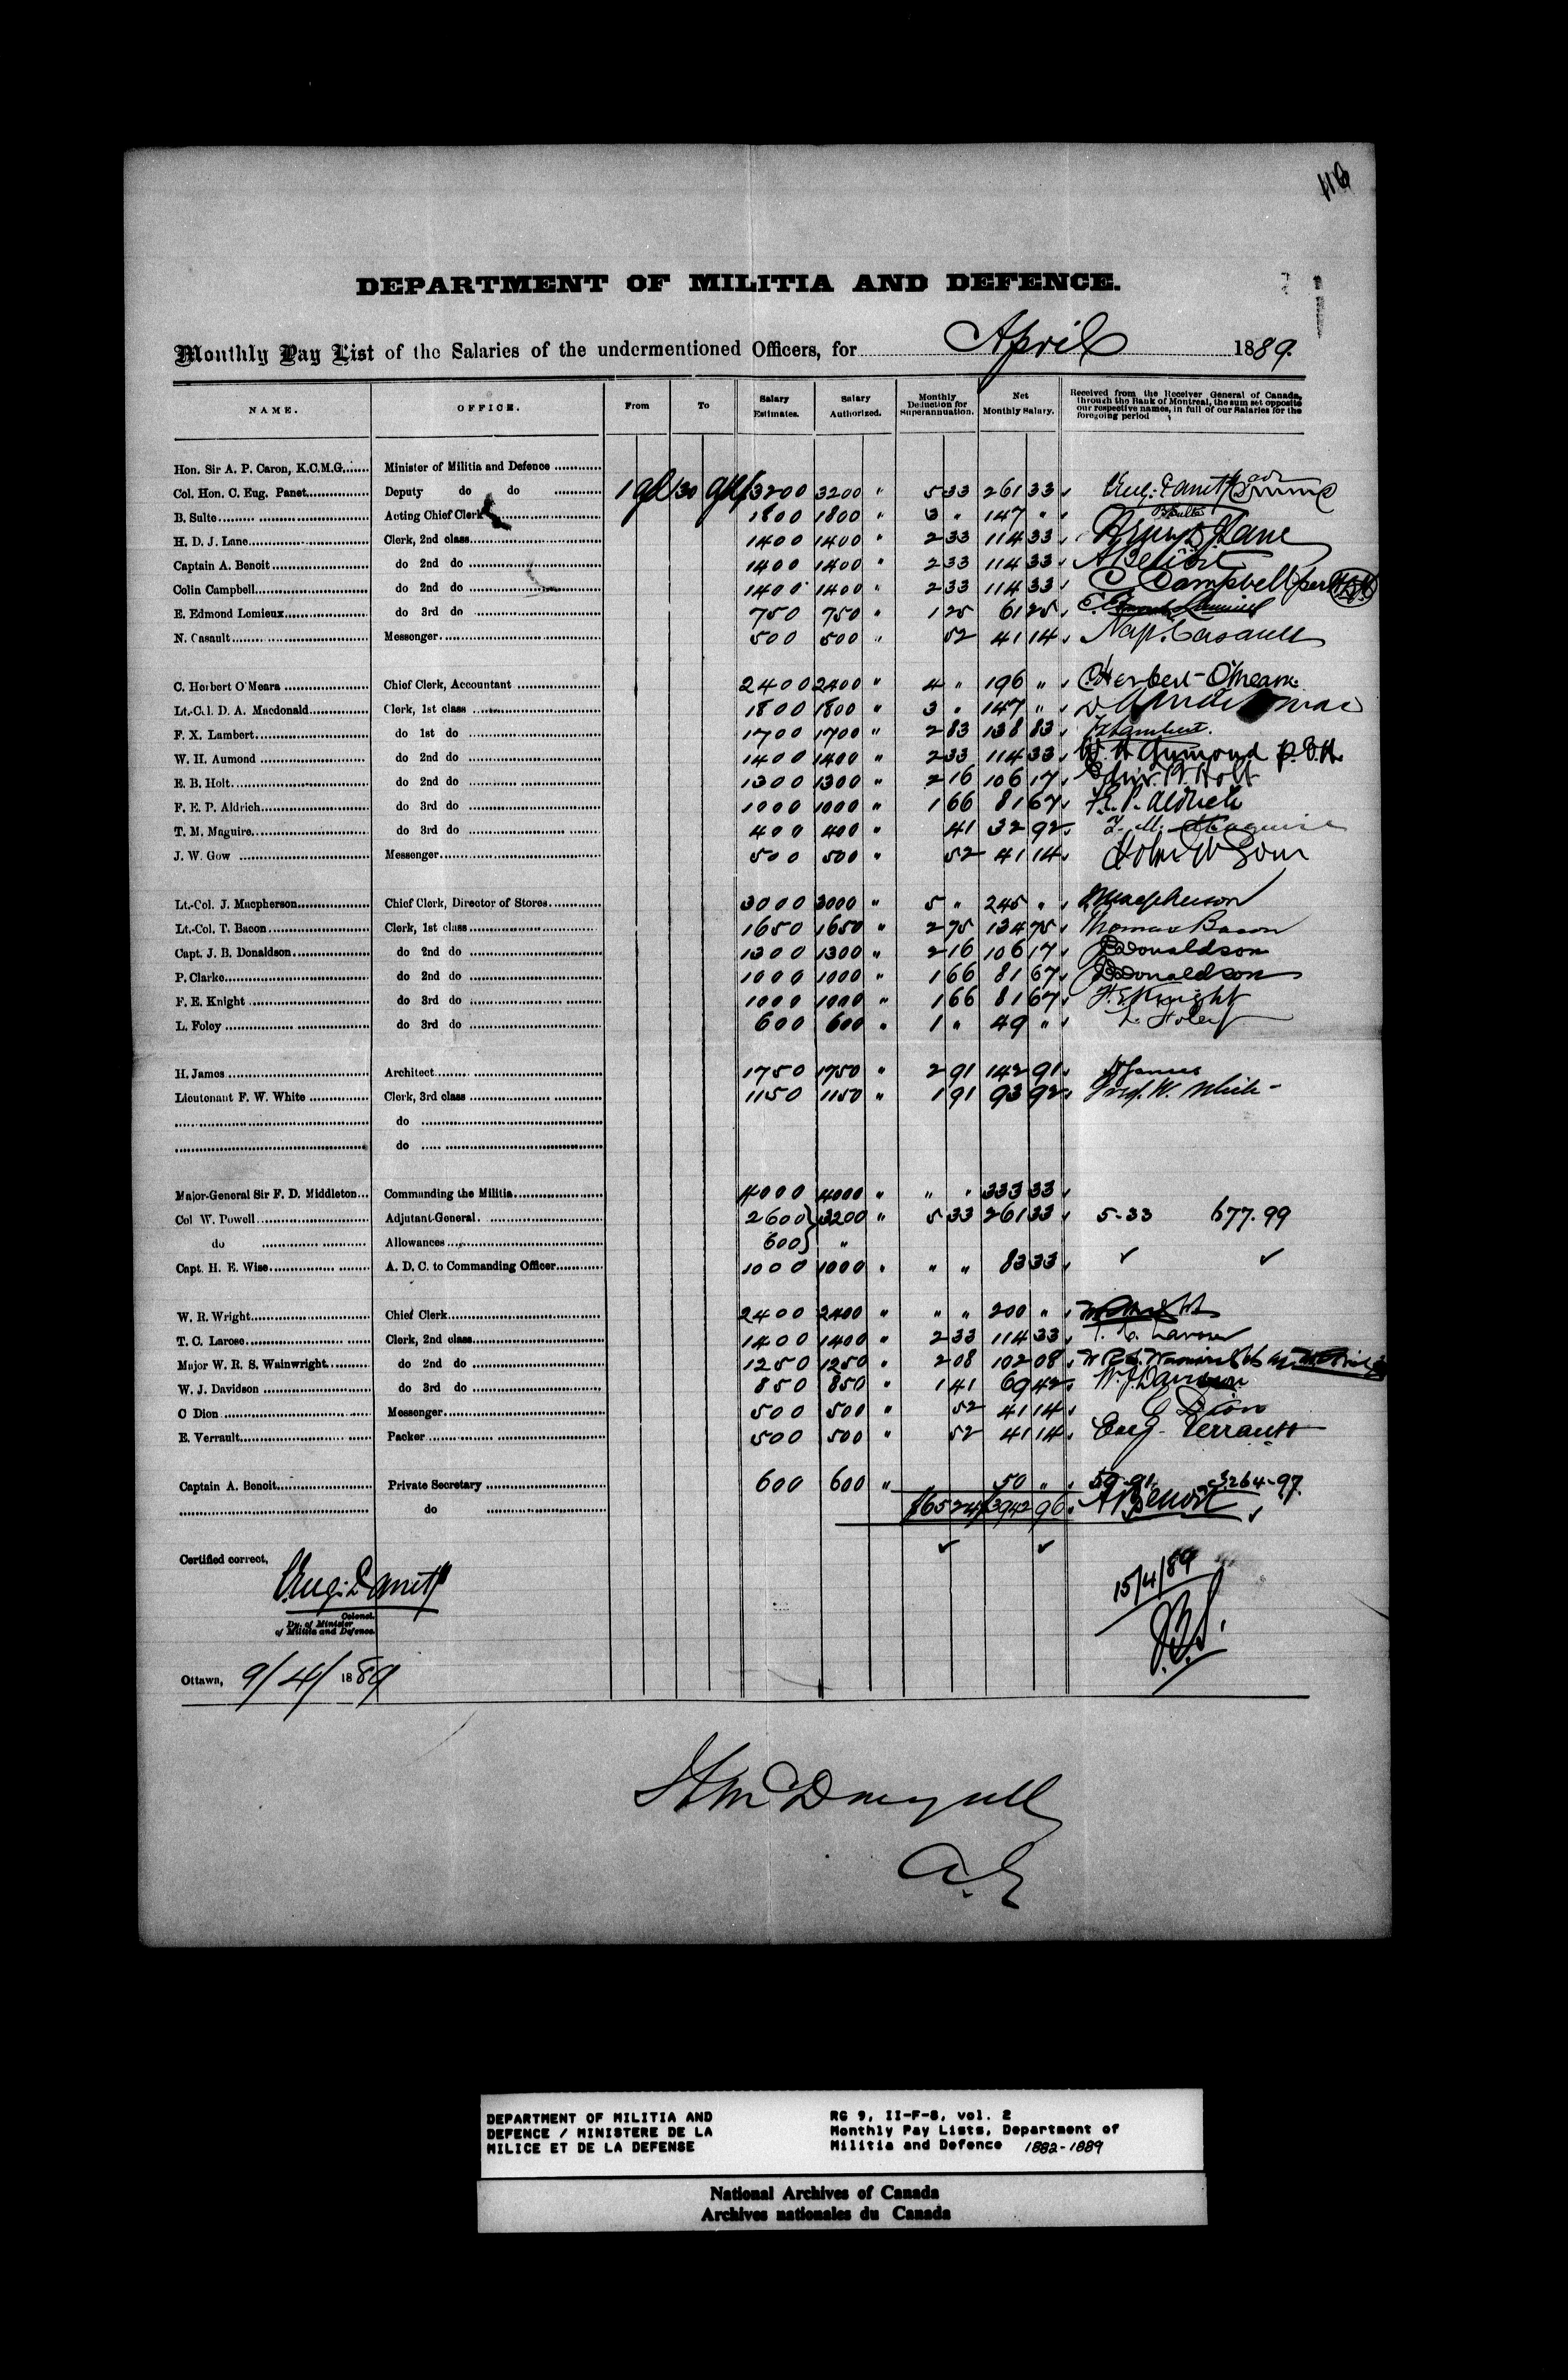 116
DEPARTMENT OF MILITIA AND DEFENCE.
Monthly Pay List of the Salaries of the undermentioned Officers, for April 1889.
NAME. OFFICE. From To Salary Estimates. Salary Authorized. Monthly Deduction for Superannuation. Net Monthly Salary. Received from the Receiver General of Canada, through the Bank of Montreal, the sum set opposite our respective names, in full of our Salaries for the foregoing period
Hon. Sir A. P. Caron, K.C.M.G. Minister of Militia and Defence
Col. Hon. C. Eug. Panet Deputy do do 1 Apl 30 Apl $3200 3200 " 5 33 261 33 Eug: Panet
B. Sulte Acting Chief Clerk 1800 1800 " 3 " 147 " B Sulte
H. D. J. Lane Clerk, 2nd class 1400 1400 " 2 33 114 33 Lane
Captain A. Benoit do 2nd do 1400 1400 " 2 33 114 33 A Benoit
Colin Campbell do 2nd do 1400 1400 " 2 33 114 33 C Campbell per
E. Edmond Lemieux do 3rd do 750 750 " 1 25 61 25 E. Edmond Lemieux
N. Casault Messenger 500 500 " 52 41 14 Nap. Casault
C. Herbert O'Meara Chief Clerk, Accountant 2400 2400 " 4 " 196 " C Herbert O'Meara
Lt.-Col. D. A. Macdonald Clerk, 1st class 1800 1800 " 3 " 147 "
F. X. Lambert do 1st do 1700 1700 " 2 83 138 83 Lambert.
W. H. Aumond do 2nd do 1400 1400 " 2 33 114 33 W. H. Aumond
E. B. Holt do 2nd do 1300 1300 " 2 16 106 17 Edwin B. Holt
F. E. P. Aldrich do 3rd do 1000 1000 " 1 66 81 67 F.E.P. Aldrich
T. M. Maguire do 3rd do 400 400 " 41 32 92 T. M. Maguire
J. W. Gow Messenger 500 500 " 52 41 14 John W Gow
Lt.-Col. J. Macpherson Chief Clerk, Director of Stores 3000 3000 " 5 " 245 " J Macpherson
Lt.-Col. T. Bacon Clerk, 1st class 1650 1650 " 2 75 134 75 Thomas Bacon
Capt. J. B. Donaldson do 2nd do 1300 1300 " 2 16 106 17 JBDonaldson
P. Clarke do 2nd do 1000 1000 " 1 66 81 67 JBDonaldson
F. E. Knight do 3rd do 1000 1000 " 1 66 81 67 F. E. Knight
L. Foley do 3rd do 600 600 " 1 " 49 " L. Foley
H. James Architect 1750 1750 " 2 91 142 91 H James
Lieutenant F. W. White Clerk, 3rd class 1150 1150 " 1 91 93 92 Fred. W. White
do
do
Major-General Sir F. D. Middleton Commanding the Militia 4000 4000 " " " 333 33
Col W. Powell Adjutant-General 2600 3200 " 5 33 261 33 5-33 677.99
do Allowances 600 "
Capt. H. E. Wise A. D. C. to Commanding Officer 1000 1000 " " " 83 33 ✓ ✓
W. R. Wright Chief Clerk 2400 2400 " " " 200 "
T. C. Larose Clerk, 2nd class 1400 1400 " 2 33 114 33 T. C. Larose
Major W. R. S. Wainwright do 2nd do 1250 1250 " 2 08 102 08 W R S. Wainwright
W. J. Davidson do 3rd do 850 850 " 1 41 69 42 W. J. Davidson
C Dion Messenger 500 500 " 52 41 14 C Dion
E. Verrault Packer 500 500 " 52 41 14 Eug. Verrault
Captain A. Benoit Private Secretary 600 600 " 50 " 59-91 3264-97
do $65 24 $3942 96 A Benoit
Certified correct,
Eug: Panet
Colonel.
Dy. of Minister
of Militia and Defence.
15/4/89
Ottawa, 9/4/1889
A.G
DEPARTMENT OF MILITIA AND
DEFENCE / MINISTERE DE LA
MILICE ET DE LA DEFENSE
RG 9, II-F-8, vol. 2
Monthly Pay Lists, Department of
Militia and Defence 1882-1889
National Archives of Canada
Archives nationales du Canada